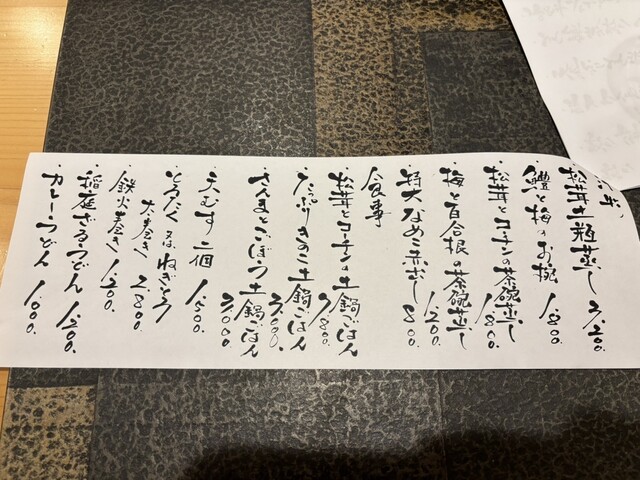 ・松茸土瓶蒸し 2,200.
・鱧と梅のお椀 1,800.
・松茸とコーチンの茶碗蒸し 1,800.
・梅と百合根の茶碗蒸し 1,200.
・特大なめこ赤だし 800.
食事
・松茸とコーチンの土鍋ごはん 7,800.
・たっぷりきのこ土鍋ごはん 3,000.
・さんまとごぼう土鍋ごはん 3,000
・天むす 二個 1,200.
・とろたく 又は ねぎとろ
太巻き 2,800.
・鉄火巻き 1,200.
・稲庭ざるうどん 1,200.
・カレーうどん 1,000.